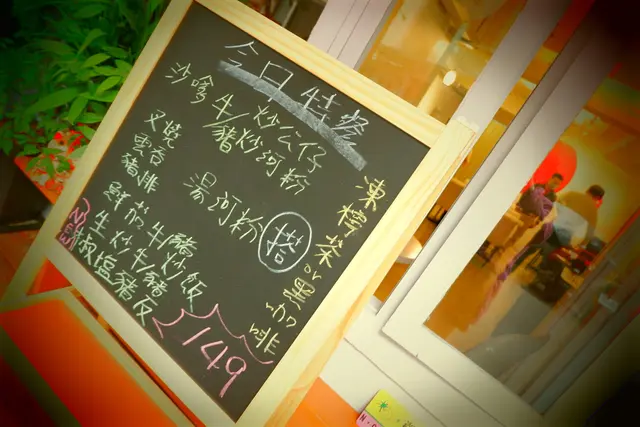 今日特餐
沙嗲牛/豬 炒公仔
炒河粉
叉燒
雲吞
豬排
湯河粉
搭
凍檸茶or黑咖啡
鮮茄牛/豬炒飯
生炒牛/豬飯
NEW 椒鹽豬扒
149